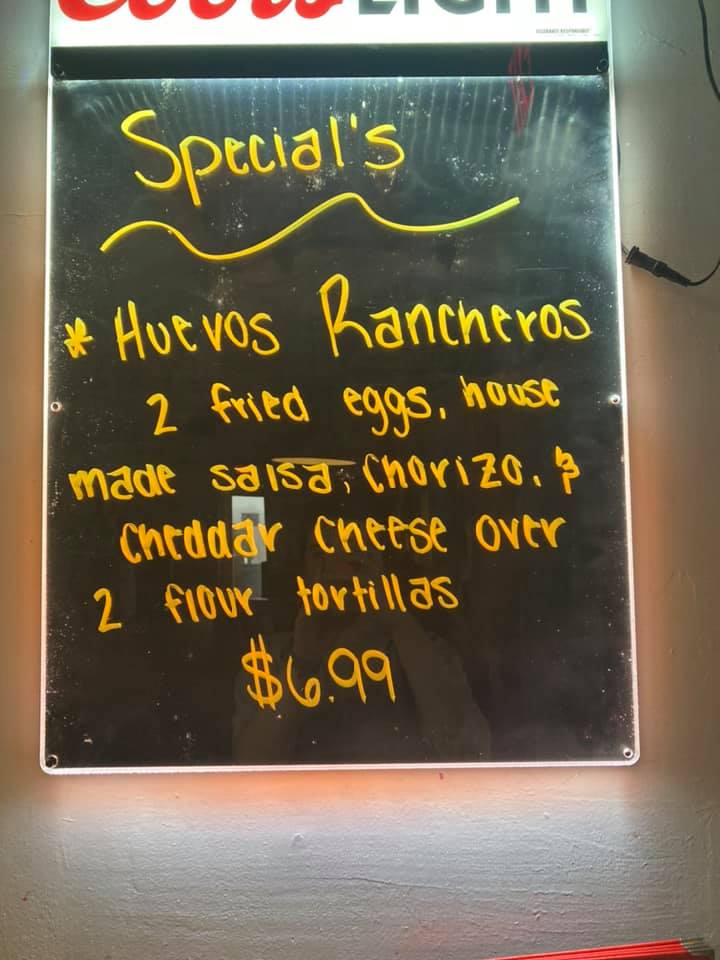 Coors LIGHT
Special's
* Huevos Rancheros
2 fried eggs, house
made salsa, chorizo, &
cheddar cheese over
2 flour tortillas
$6.99